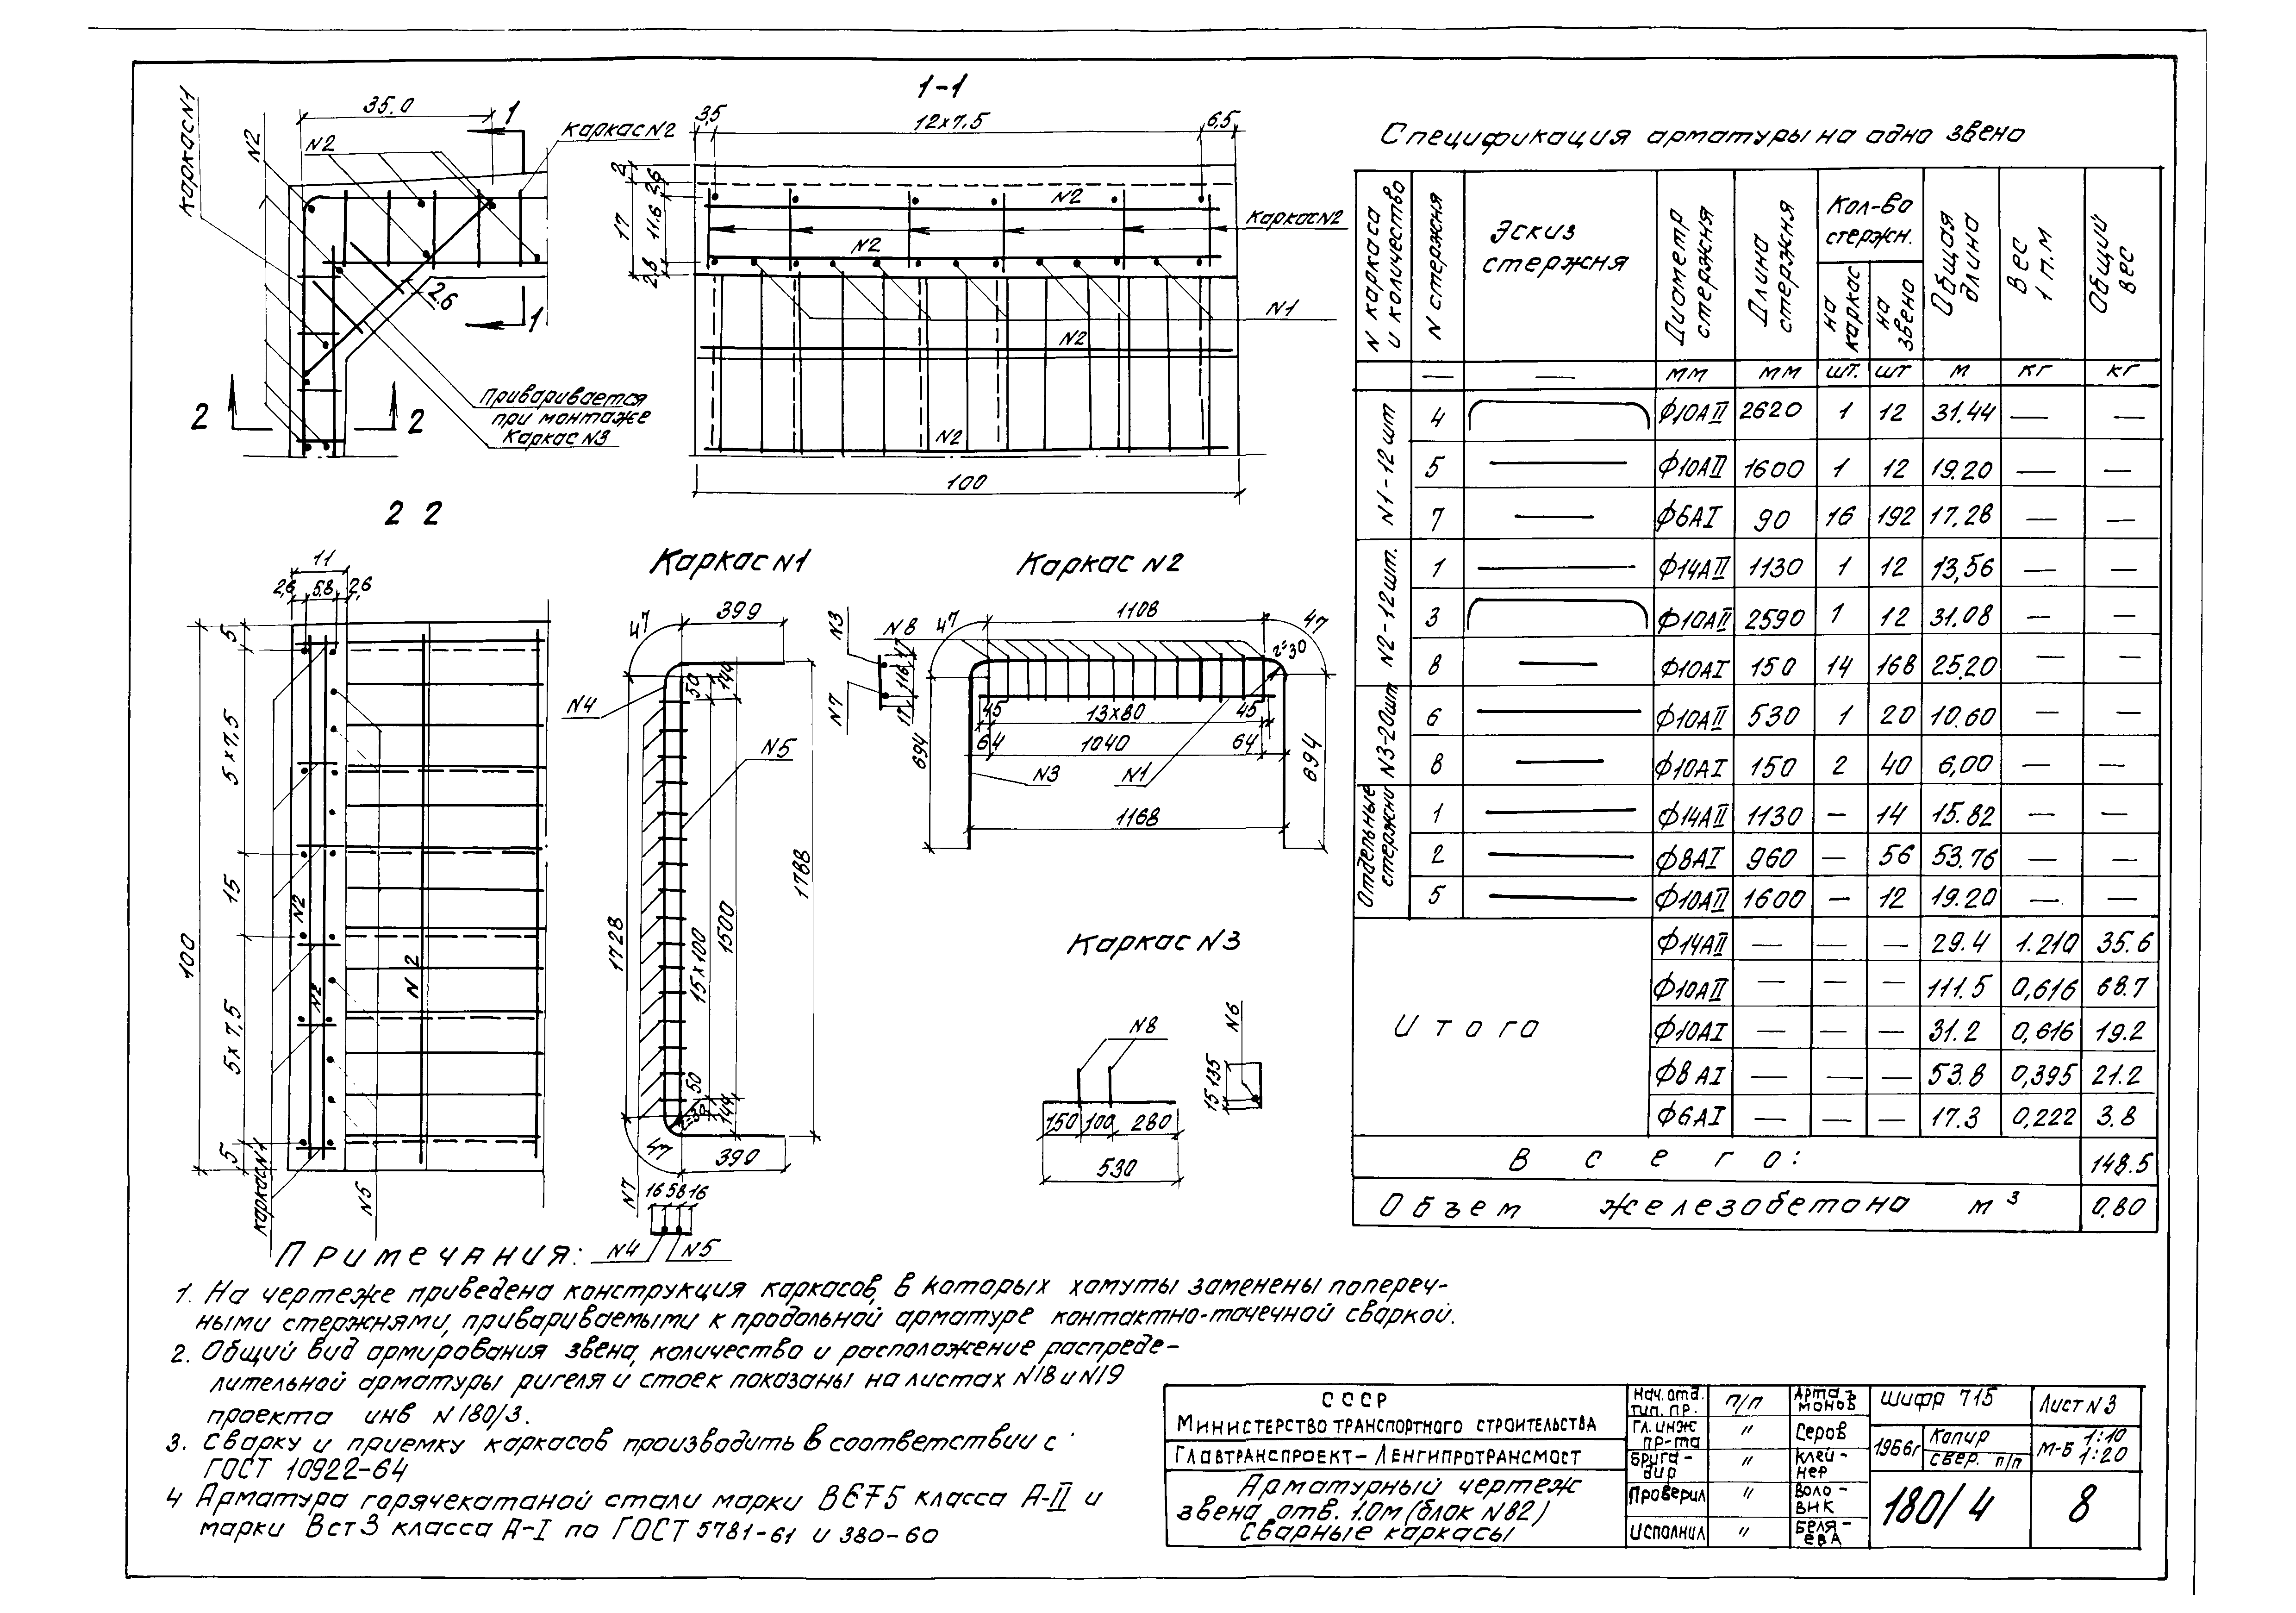 1-1
35.0
1
Каркас N2
Каркас N1
N2
N2
2.6
1
2
2
Приваривается
при монтаже
Каркас N3
3,5
12х7.5
6,5
2
2,6
17
11.6
2.8
N2
N2
Каркас N2
N1
N2
N2
100
2 2
11
2,6
5.8
2,6
5
5х7,5
15
100
5х7,5
5
N2
N2
N2
Каркас N1
N5
Каркас N1
47
399
N4
50
144
N5
1728
15х100
1500
1788
50
144
r=30
47
390
N7
16 58 16
N4
N5
Каркас N2
N3
N8
N7
17
116
17
47
1108
47
r=30
694
45
13х80
45
64
1040
64
694
N3
N1
1168
Каркас N3
N8
N6
150 100 280
530
15 135
Спецификация арматуры на одно звено
N каркаса и количество
N стержня
Эскиз стержня
Диаметр стержня
Длина стержня
Кол-во стержн.
на каркас
на звено
Общая длина
Вес 1 п.м
Общий вес
— — мм мм шт. шт м кг кг
N1-12 шт
4 Ф10АII 2620 1 12 31.44 —
5 Ф10АII 1600 1 12 19.20 — —
7 Ф6АI 90 16 192 17.28 — —
N2-12шт.
1 Ф14АII 1130 1 12 13,56 — —
3 Ф10АII 2590 1 12 31.08 — —
8 Ф10АI 150 14 168 25.20 — —
N3-20шт
6 Ф10АII 530 1 20 10.60 — —
8 Ф10АI 150 2 40 6,00 — —
Отдельные стержни
1 Ф14АII 1130 — 14 15.82 — —
2 Ф8АI 960 — 56 53.76 — —
5 Ф10АII 1600 — 12 19.20 — —
Итого
Ф14АII — — — 29.4 1.210 35.6
Ф10АII — — — 111.5 0,616 68.7
Ф10АI — — — 31.2 0,616 19.2
Ф8АI — — — 53.8 0,395 21.2
Ф6АI — — — 17.3 0,222 3.8
Всего: 148.5
Объем железобетона м³ 0,80
Примечания:
1. На чертеже приведена конструкция каркасов, в которых хомуты заменены попереч-
ными стержнями, привариваемыми к продольной арматуре контактно-точечной сваркой.
2. Общий вид армирования звена, количество и расположение распреде-
лительной арматуры ригеля и стоек показаны на листах N18 и N19
проекта инв N180/3.
3. Сварку и приемку каркасов производить в соответствии с
ГОСТ 10922-64
4 Арматура горячекатаной стали марки ВСт5 класса А-II и
марки Вст3 класса А-I по ГОСТ 5781-61 и 380-60
СССР
Министерство транспортного строительства
Главтранспроект-Ленгипротрансмост
Арматурный чертеж
звена отв. 1.0м (блок N82)
Сварные каркасы
Нач. отд. тип. пр. п/п Артамонов
Гл. инж пр-та " Серов
Бригадир " Клейнер
Проверил " Воловик
Исполнил " Беляева
Шифр 715
Лист N3
1966г
Копир
Свер. п/п
М-Б 1:10 1:20
180/4
8